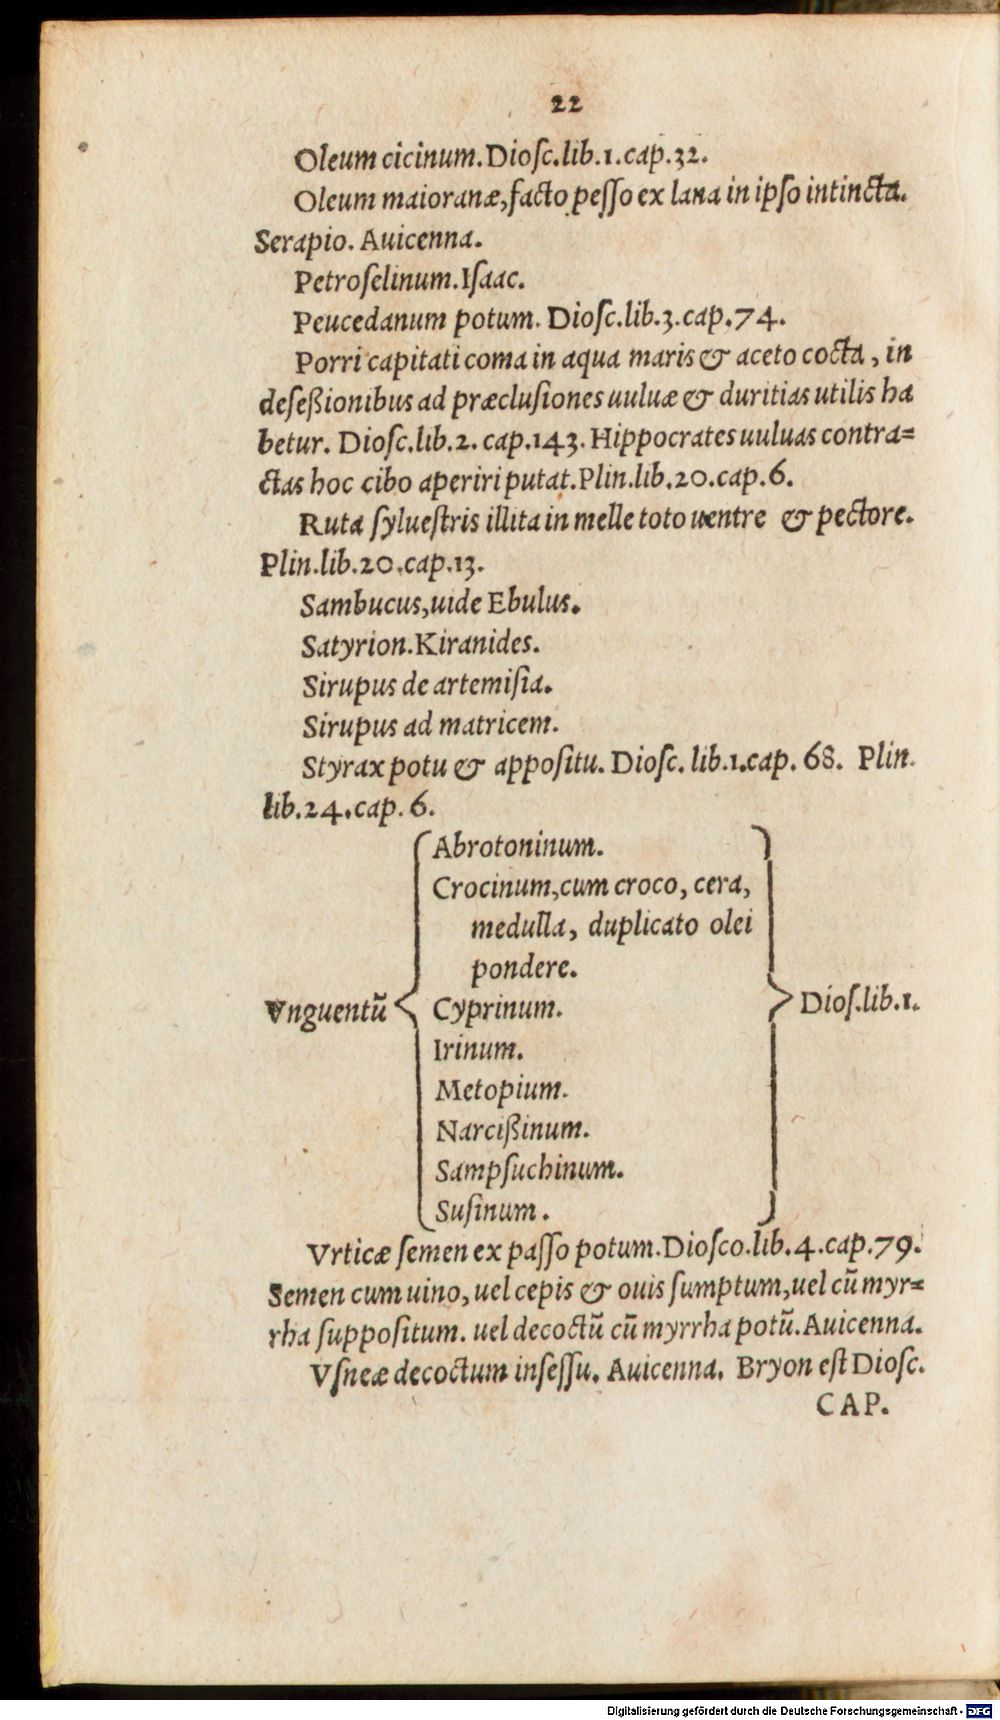 22
Oleum cicinum. Dioſc. lib. 1. cap. 32.
Oleum maioranæ, facto peſſo ex lana in ipſo intincta.
Serapio. Auicenna.
Petroſelinum. Iſaac.
Peucedanum potum. Dioſc. lib. 3. cap. 74.
Porri capitati coma in aqua maris & aceto cocta, in
deſeßionibus ad præcluſiones uuluæ & duritias utilis ha
betur. Dioſc. lib. 2. cap. 143. Hippocrates uuluas contra=
ctas hoc cibo aperiri putat. Plin. lib. 20. cap. 6.
Ruta ſylueſtris illita in melle toto uentre & pectore.
Plin. lib. 20. cap. 13.
Sambucus, uide Ebulus.
Satyrion. Kiranides.
Sirupus de artemiſia.
Sirupus ad matricem.
Styrax potu & appoſitu. Dioſc. lib. 1. cap. 68. Plin.
lib. 24. cap. 6.
Abrotoninum.
Crocinum, cum croco, cera,
medulla, duplicato olei
pondere.
Vnguentū Cyprinum. Dioſ. lib. 1.
Irinum.
Metopium.
Narcißinum.
Sampſuchinum.
Suſinum.
Vrticæ ſemen ex paſſo potum. Dioſco. lib. 4. cap. 79.
Semen cum uino, uel cepis & ouis ſumptum, uel cū myr=
rha ſuppoſitum. uel decoctū cū myrrha potū. Auicenna.
Vſneæ decoctum inſeſſu. Auicenna. Bryon eſt Dioſc.
CAP.
Digitalisierung gefördert durch die Deutsche Forschungsgemeinschaft - DFG